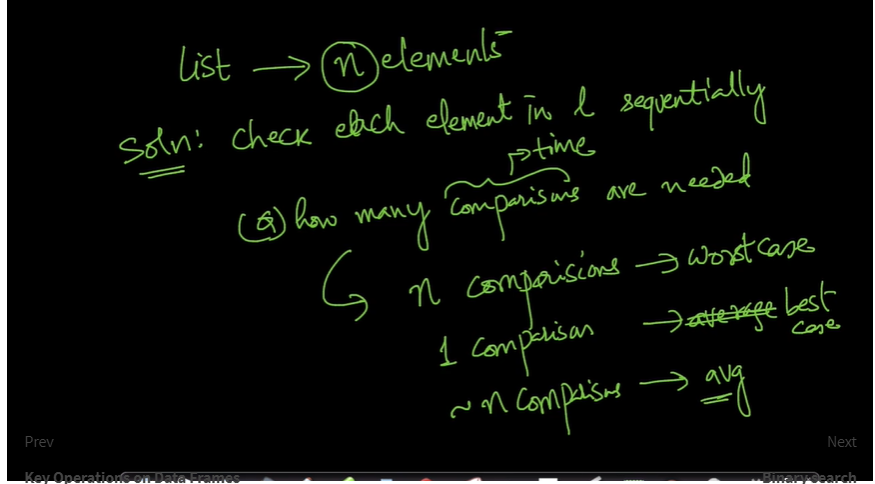 list → n elements
Soln: check each element in l sequentially
→ time
(Q) how many comparisons are needed
n comparisions → worst case
1 comparison → average best case
~ n comparisons → avg
Prev
Next
Key Operations on Data Frames
Binary search